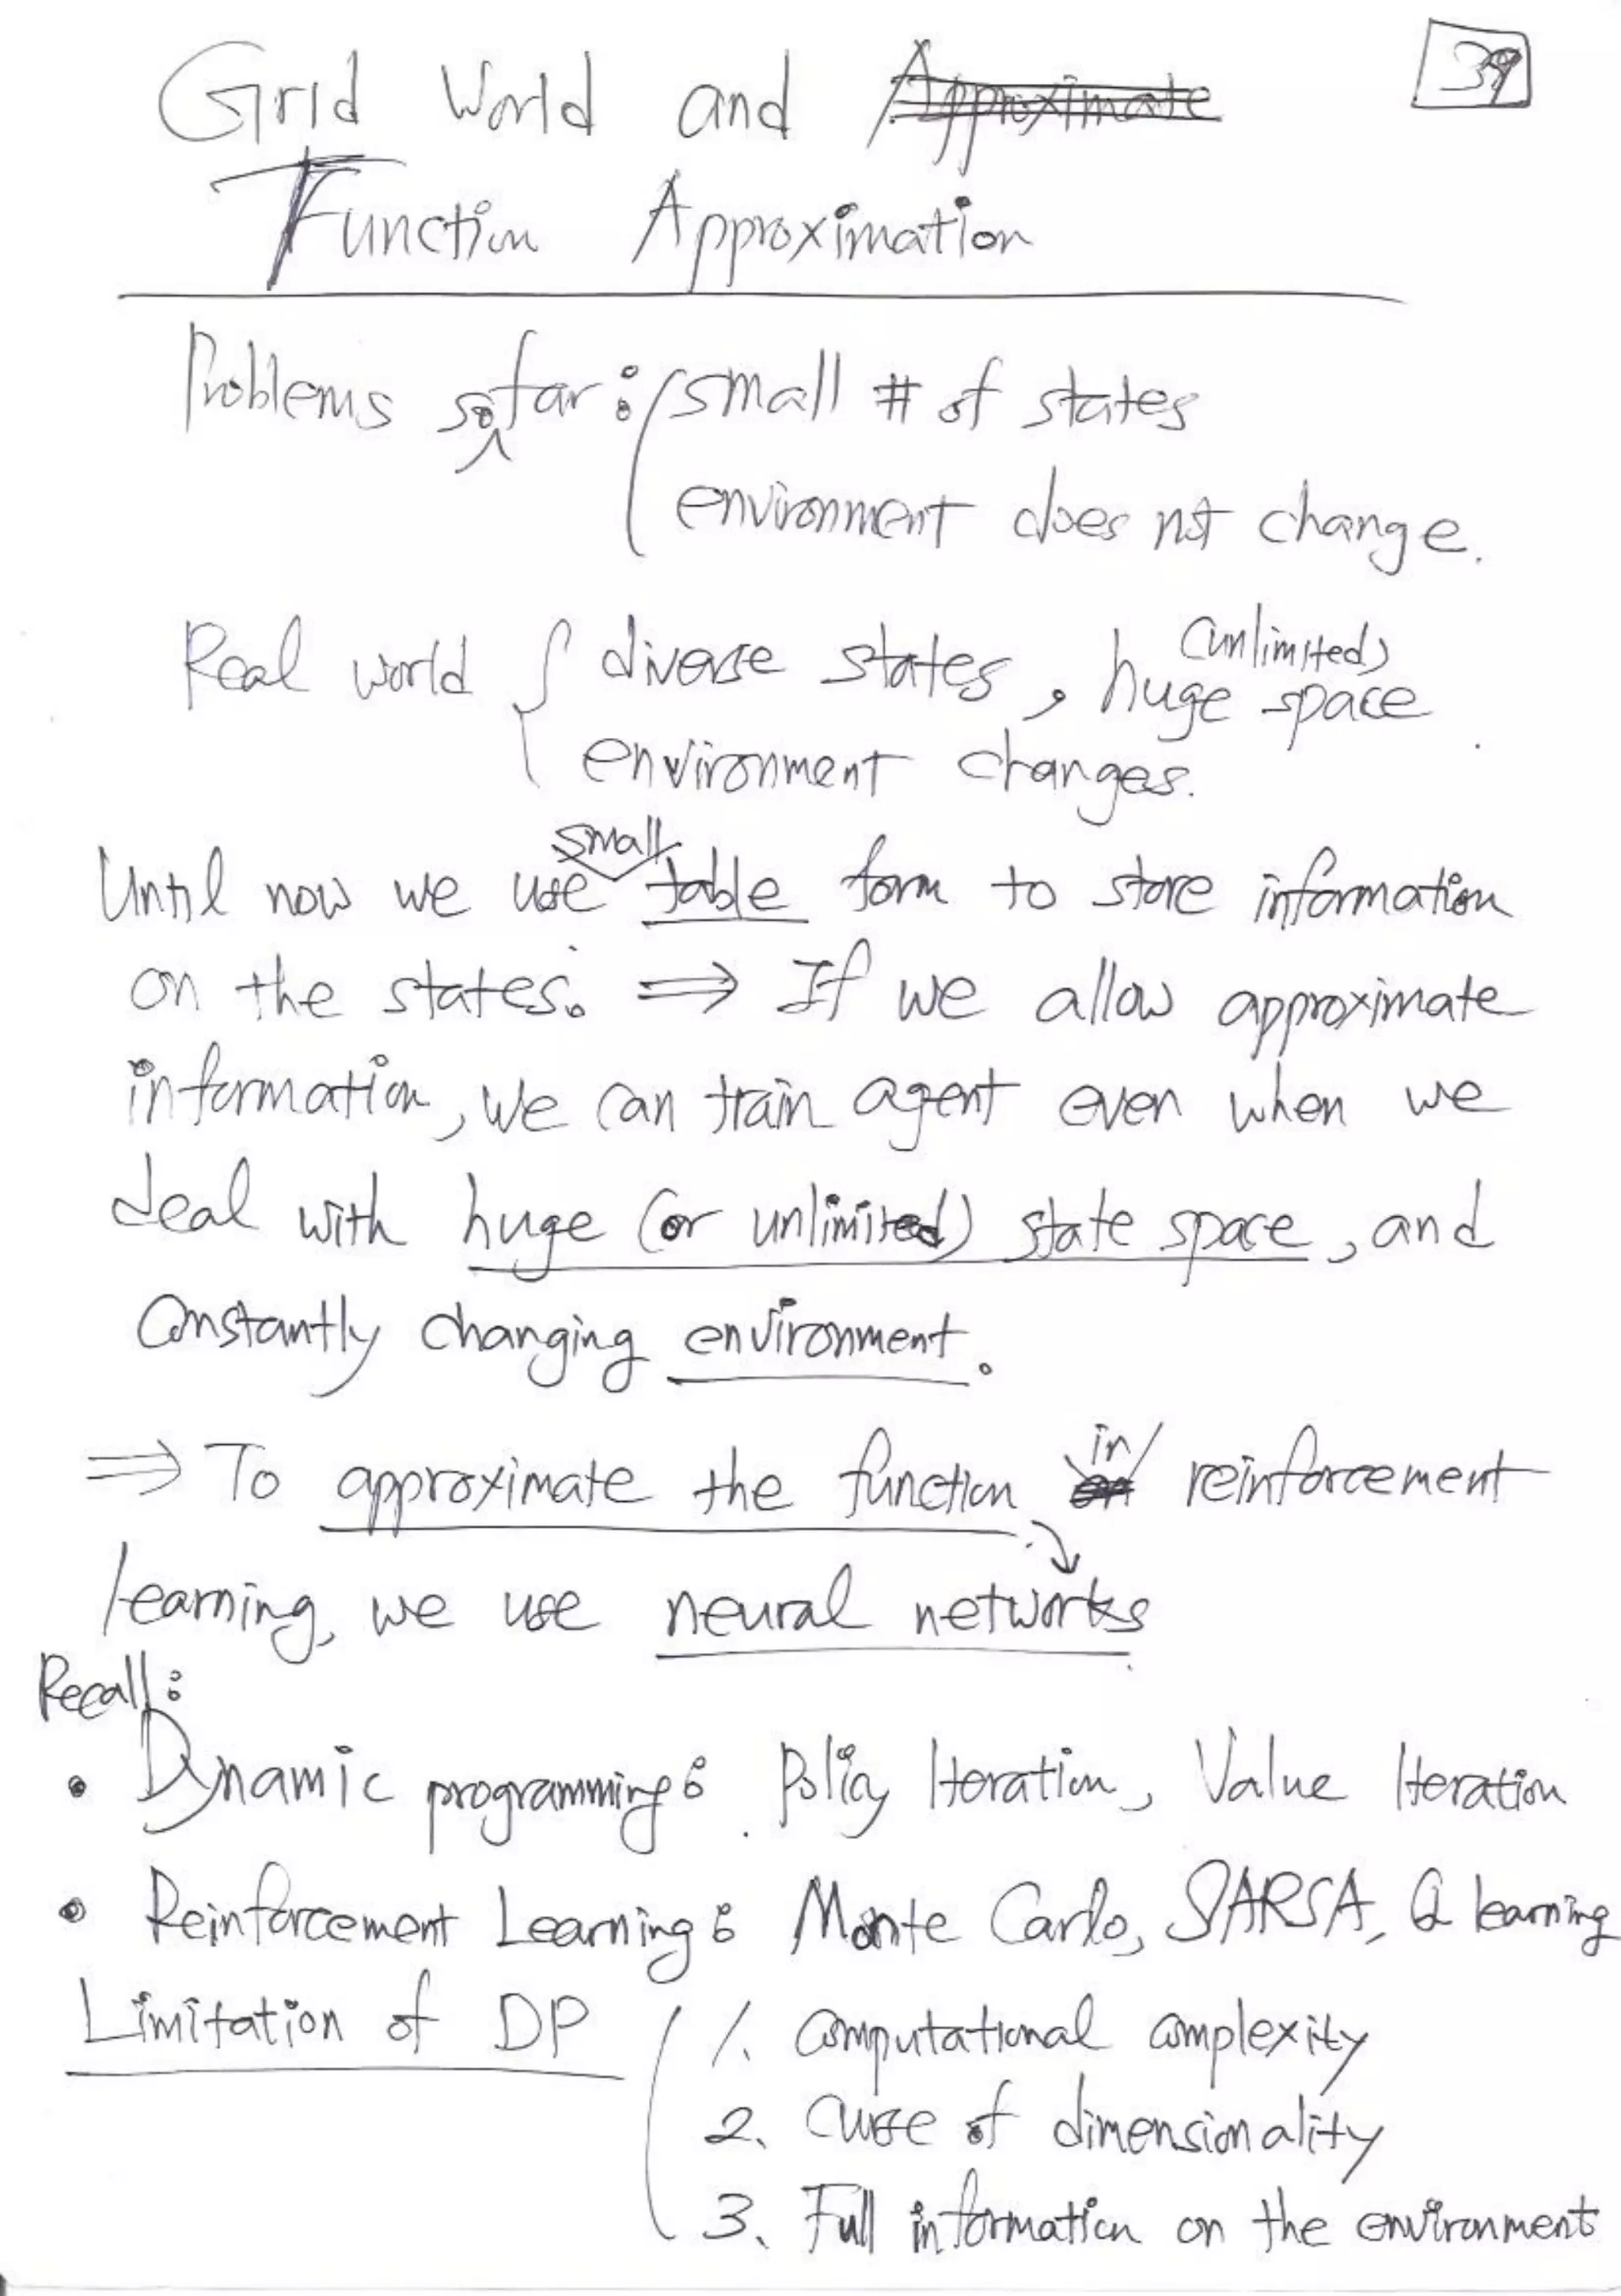 Grid World and Approximate
39
Function Approximation
Problems so far: small # of states
environment does not change.
Real world { diverse states, huge (unlimited) space
environment changes.
Until now we use small table form to store information
on the states. ⇒ If we allow approximate
information, we can train agent even when we
deal with huge (or unlimited) state space, and
constantly changing environment.
⇒ To approximate the function in reinforcement
learning, we use neural networks
Recall:
• Dynamic programming: Policy Iteration, Value Iteration
• Reinforcement Learning: Monte Carlo, SARSA, Q learning
Limitation of DP ( 1. Computational complexity
2. Curse of dimensionality
3. Full information on the environment